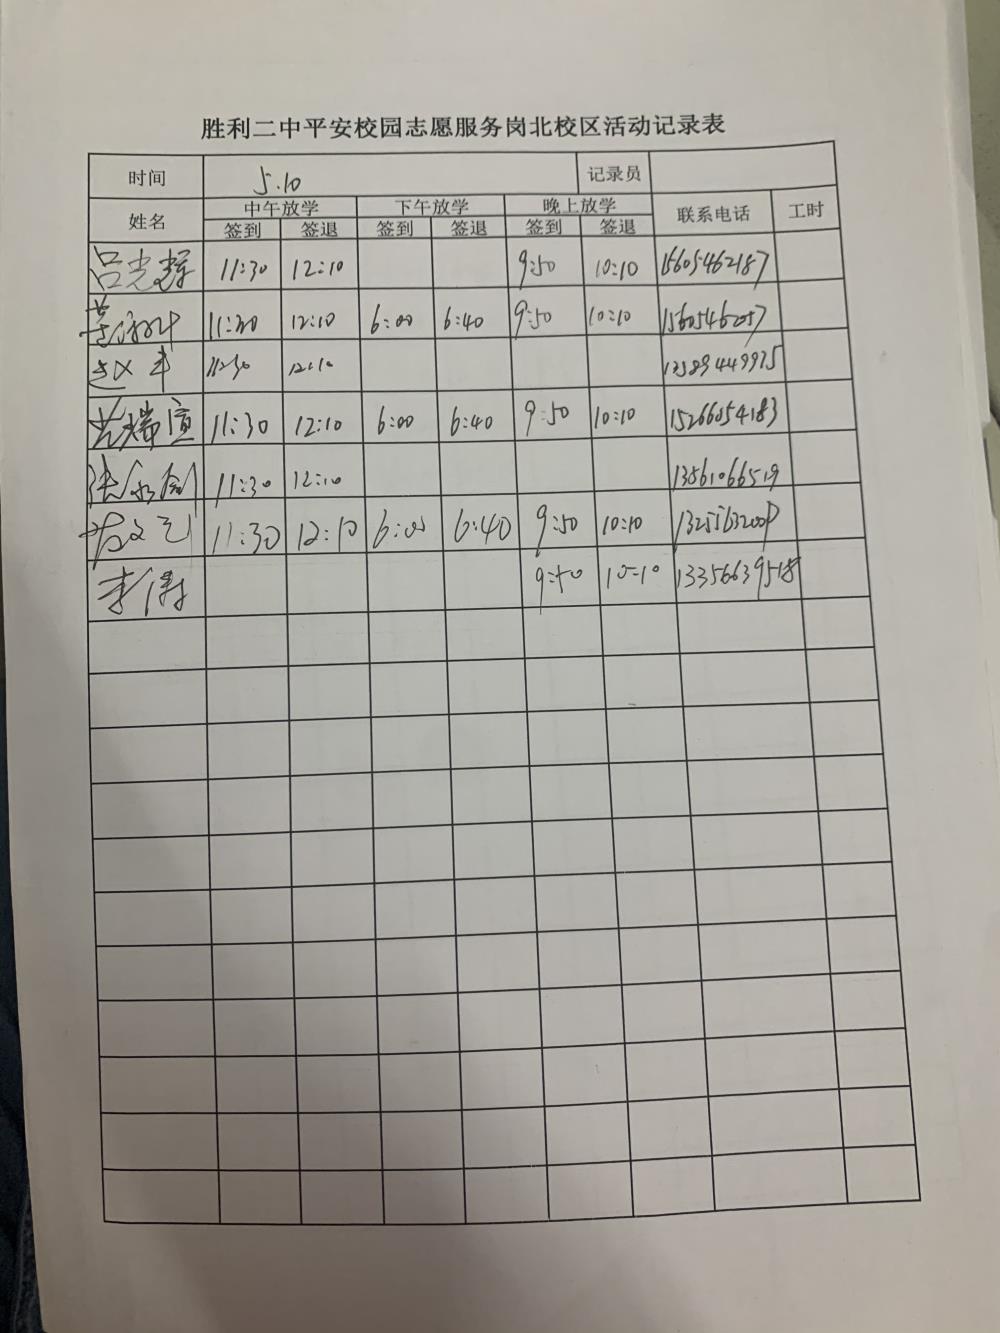 胜利二中平安校园志愿服务岗北校区活动记录表
时间 5.10 记录员
姓名 中午放学 下午放学 晚上放学 联系电话 工时
签到 签退 签到 签退 签到 签退
吕光辉 11:30 12:10 9:50 10:10 15605462187
11:30 12:10 6:00 6:40 9:50 10:10 15605462057
赵丰 11:30 12:10 13589449975
瑞宣 11:30 12:10 6:00 6:40 9:50 10:10 15266054183
张永剑 11:30 12:10 13561066519
11:30 12:10 6:00 6:40 9:50 10:10
李涛 9:50 10:10 13356639518